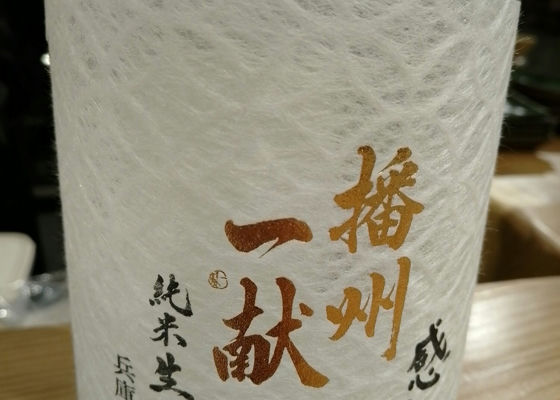 感
播州
一献
純米生
兵庫